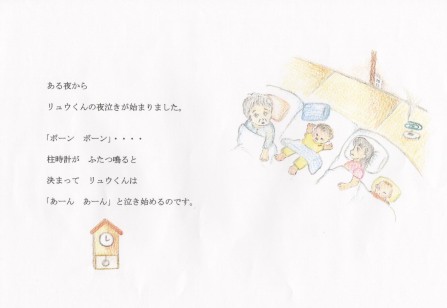 ある夜から
リュウくんの夜泣きが始まりました。
「ボーン　ボーン」・・・・
柱時計が　ふたつ鳴ると
決まって　リュウくんは
「あーん　あーん」と泣き始めるのです。